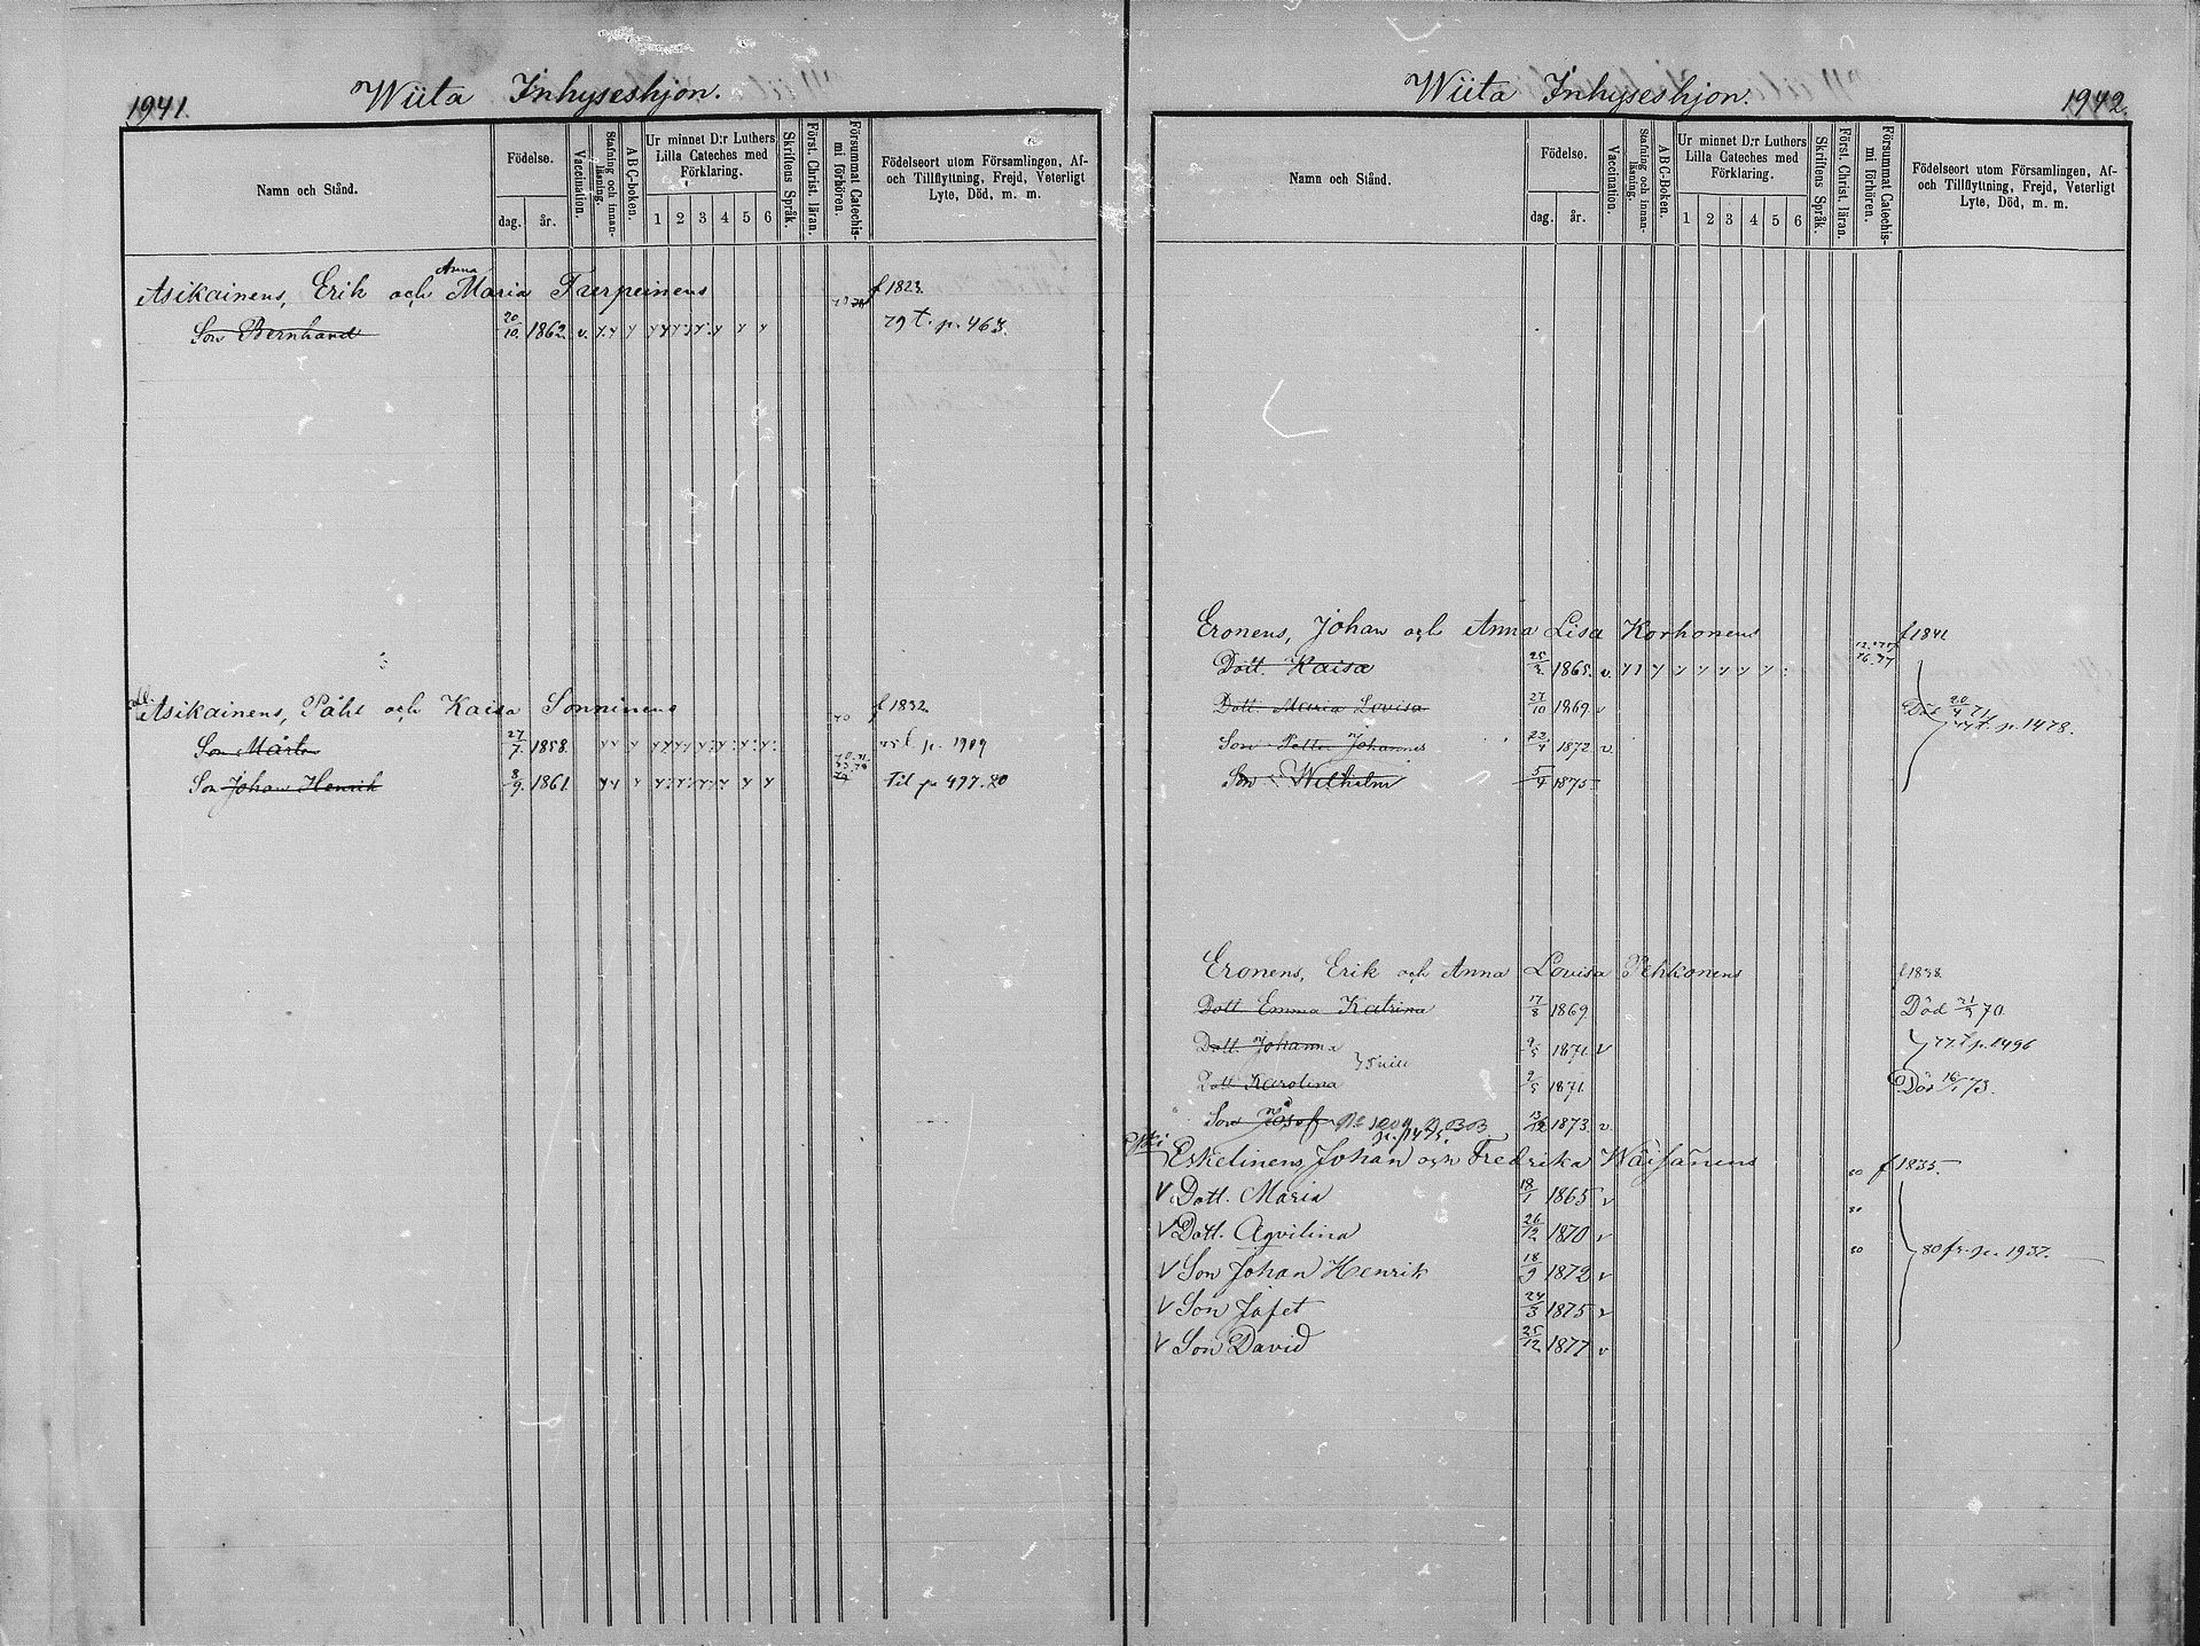 1941.
Wiita Inhyseshjon.
Namn och Stånd.
Födelse.
dag. år.
Vaccination.
Stafning och innanläsning.
ABC-boken.
Ur minnet D:r Luthers Lilla Cateches med Förklaring.
1 2 3 4 5 6
Skriftens Språk.
Först. Christ. läran.
Försummat Catechismi förhören.
Födelseort utom Församlingen, Af- och Tillflyttning, Frejd, Veterligt Lyte, Död, m. m.
Anna
Asikainens, Erik och Maria Turpeinens f 1823.
Son Bernhard 20/10. 1862. v. 79 t. p. 463.
Asikainens, Påhl och Kaisa Sonninens 70 f 1832.
Son Mårten 27/7. 1858. 75 t. p. 1909
Son Johan Henrik 8/9. 1861. Til pa 497. 80
Wiita Inhyseshjon.
1942.
Namn och Stånd.
Födelse.
dag. år.
Vaccination.
Stafning och innanläsning.
ABC-Boken.
Ur minnet D:r Luthers Lilla Cateches med Förklaring.
1 2 3 4 5 6
Skriftens Språk.
Först. Christ. läran.
Försummat Catechismi förhören.
Födelseort utom Församlingen, Af- och Tillflyttning, Frejd, Veterligt Lyte, Död, m. m.
Eronens, Johan och Anna Lisa Korhonens f 1841
Dott. Kaisa 25/3. 1865. v. 76. 77
Dott. Maria Lovisa 27/10 1869. v Död 20/4 71
Son Petter Johannes 22/4 1872 v. 77 t. p. 1478.
Son Wilhelm 5/4 1875
Eronens, Erik och Anna Lovisa Pehkonens f 1838.
Dott. Emma Katrina 17/8 1869. Död 21/5 70
Dott. Johanna 9/5 1871. v 77 t p. 1496
Dott Karolina 9/5 1871 Död 16/1 73.
Son Josef 1873. v.
p. 1475.
Eskelinens, Johan och Fredrika Wäisänens 80 f 1835.
v Dott. Maria 18/1 1865 v 80
v Dott. Aqvilina 26/12 1870 v
v Son Johan Henrik 18/9 1872 v 80 80 fr. p. 1937.
v Son Jafet 24/3 1875 v
v Son David 25/12 1877 v